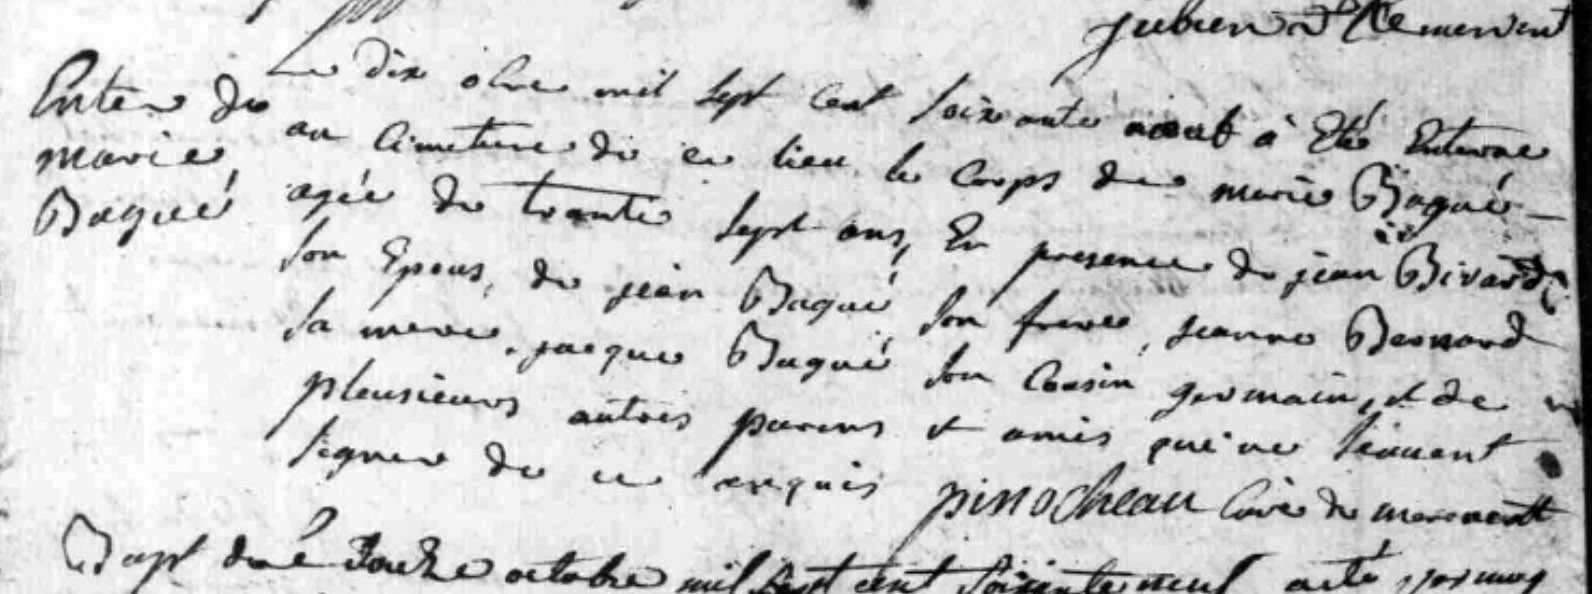 Enter de
marie
Baqué
Le dix obre mil sept cent soixante neub a Eté Enterrée
au Cimetiere de ce lieu le Corps de marie Baqué
agée de trante sept ans, En presence de jean Bivard
son Epous, de jean Baqué son frere, jeanne Besnard
sa mere, jacque Baqué son Cousin germain, et de
pleusieurs autres parens et amis qui ne scauent
signer de ce enquis pinocheau Curé de
Bapt Le Douze octobre mil sept cent soixante neuf a eté